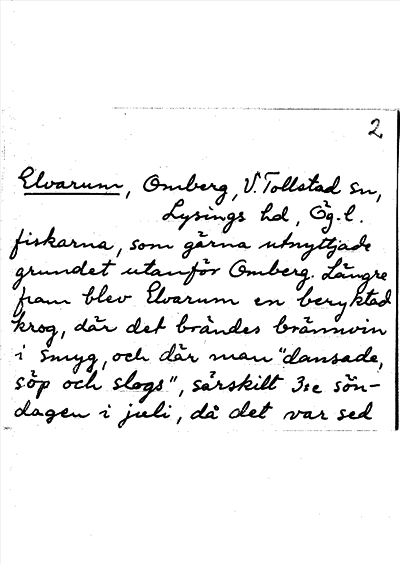 2
Elvarum, Omberg, V. Tollstad sn,
Lysings hd, Ög. l.
fiskarna, som gärna utnyttjade
grundet utanför Omberg. Längre
fram blev Elvarum en beryktad
krog, där det brändes brännvin
i smyg, och där man "dansade,
söp och slogs", särskilt 3:e sön-
dagen i juli, då det var sed